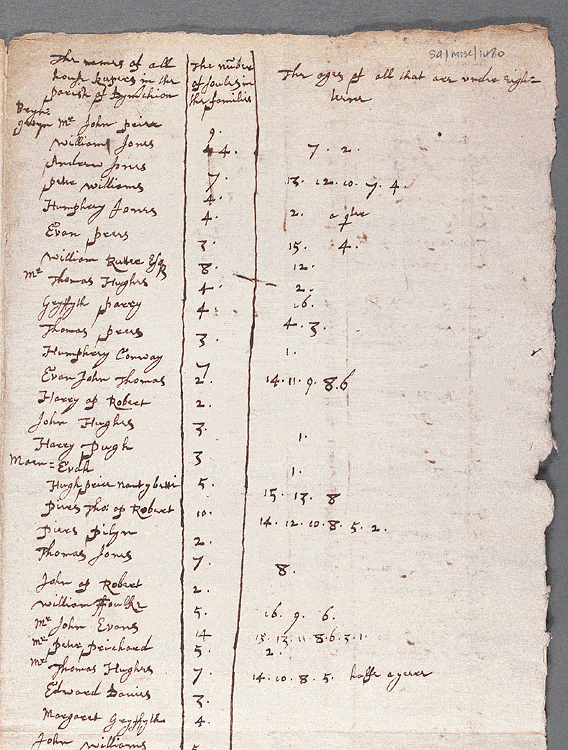 SA/MISC/1480
The names of all The nūber The ages of all that are under eigh=
house keepers in the of soules in teene
parish of Dymeirchion the families
Mr John peirs 9.
William Jones 4 4. 7. 2.
Andrew Jones
peter williams 7. 13. 12. 10. 7. 4.
Humphrey Jones 4. 2. a qter
Evan peers 4. 15. 4.
William Rutter Esqr 3. 12.
Mr Thomas Hughes 8. 2.
Gryffyth parry 4. 16.
Thomas peers 4. 4. 3.
Humphrey Conway 3. 1.
Evan John Thomas 7 14. 11. 9. 8. 6
Harry ap Robert 2.
John Hughes 2.
Harry pugh 3. 1.
Evan 3 1.
Hugh price 5. 15. 13. 8
Piers Tho: ap Robert 10. 14. 12. 10. 8. 5. 2.
Piers 2.
Thomas Jones 7. 8.
John ap Robert 2.
William Foulke 5. 16. 9. 6.
Mr John Evans 14 15. 13. 11. 8. 6. 3. 1.
Mr Peter Prichard 5. 2.
Mr Thomas Hughes 7. 14. 10. 8. 5. halfe a yeere
Edward Davies 3.
Margaret Gryffyth 4.
John Williams 5